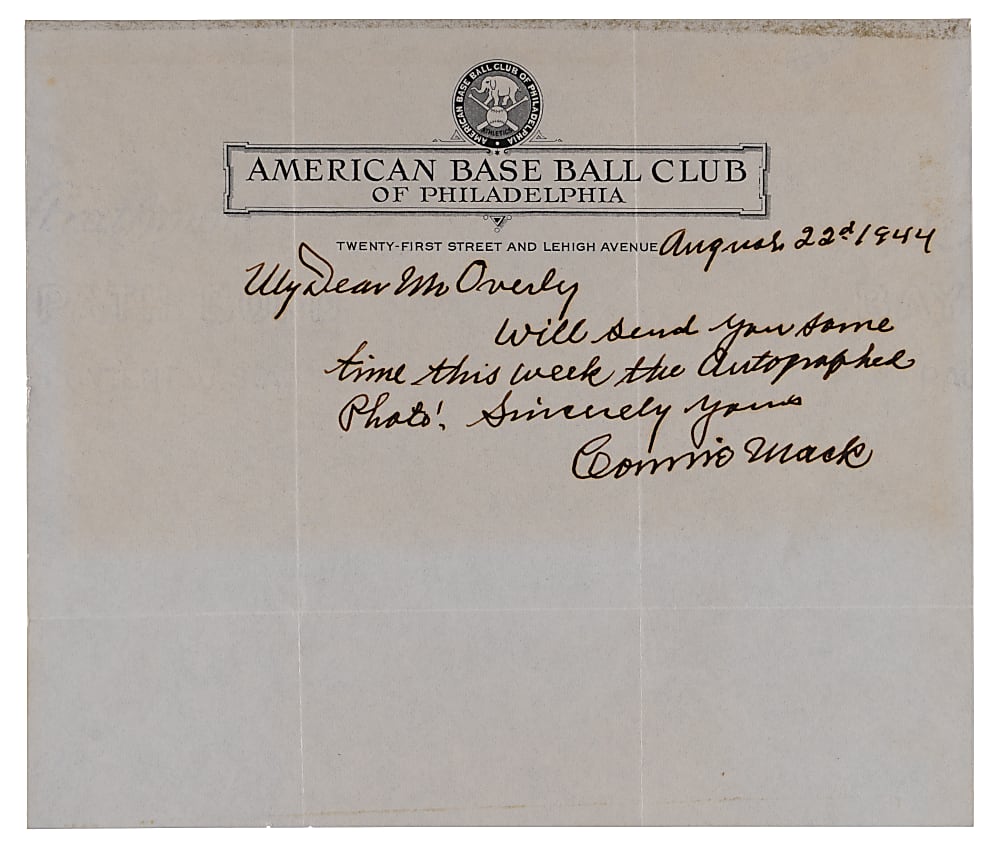 AMERICAN BASE BALL CLUB OF PHILADELPHIA
ATHLETICS
AMERICAN BASE BALL CLUB
OF PHILADELPHIA
TWENTY-FIRST STREET AND LEHIGH AVENUE August 22d 1944
My Dear Mr Overly
Will send you some
time this week the Autographed
Photo! Sincerely Yours
Connie Mack